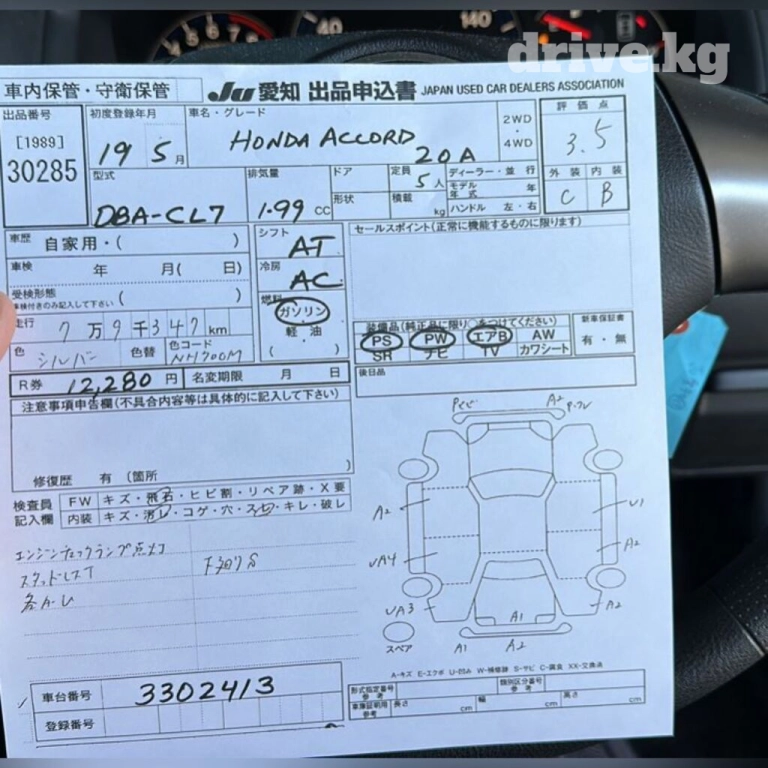 40 140
drive.kg
車内保管・守衛保管 JU 愛知 出品申込書 JAPAN USED CAR DEALERS ASSOCIATION
出品番号 初度登録年月 車名・グレード 2WD・4WD 評価点
[1989]
30285 19 5月 HONDA ACCORD 20A 3.5
型式 排気量 ドア 定員 ディーラー・並行 外装 内装
DBA-CL7 1.99 CC 形状 5人 モデル年式 年 C B
積載 kg ハンドル 左・右
車歴 自家用・( ) シフト AT セールスポイント(正常に機能するものに限ります)
車検 年 月( 日) 冷房 AC
受検形態 ( )
車検付きのみ記入して下さい
燃料 ガソリン
走行 7万9千347km 軽・油
( )
装備品(純正品に限り○をつけてください) 新車保証書
PS PW エアB AW 有・無
SR ナビ TV カワシート
色 シルバー 色替 色コード NH700M
R券 12,280円 名変期限 月 日 後日品
注意事項申告欄(不具合内容等は具体的に記入して下さい)
修復歴 有 (箇所 )
検査員記入欄 FW キズ・飛石・ヒビ割・リペア跡・X要
内装 キズ・汚レ・コゲ・穴・スレ・キレ・破レ
エンジンチェックランプ点灯
スタッドレスT
A2 A2 U1
UA4 A2
UA3 A1 A2
スペア A1 A2
A-キズ E-エクボ U-凹み W-補修跡 S-サビ C-腐食 XX-交換済
車台番号 3302413 形式指定番号 参考 類別区分番号 参考
登録番号 車庫証明用 参考 長さ cm 幅 cm 高さ cm